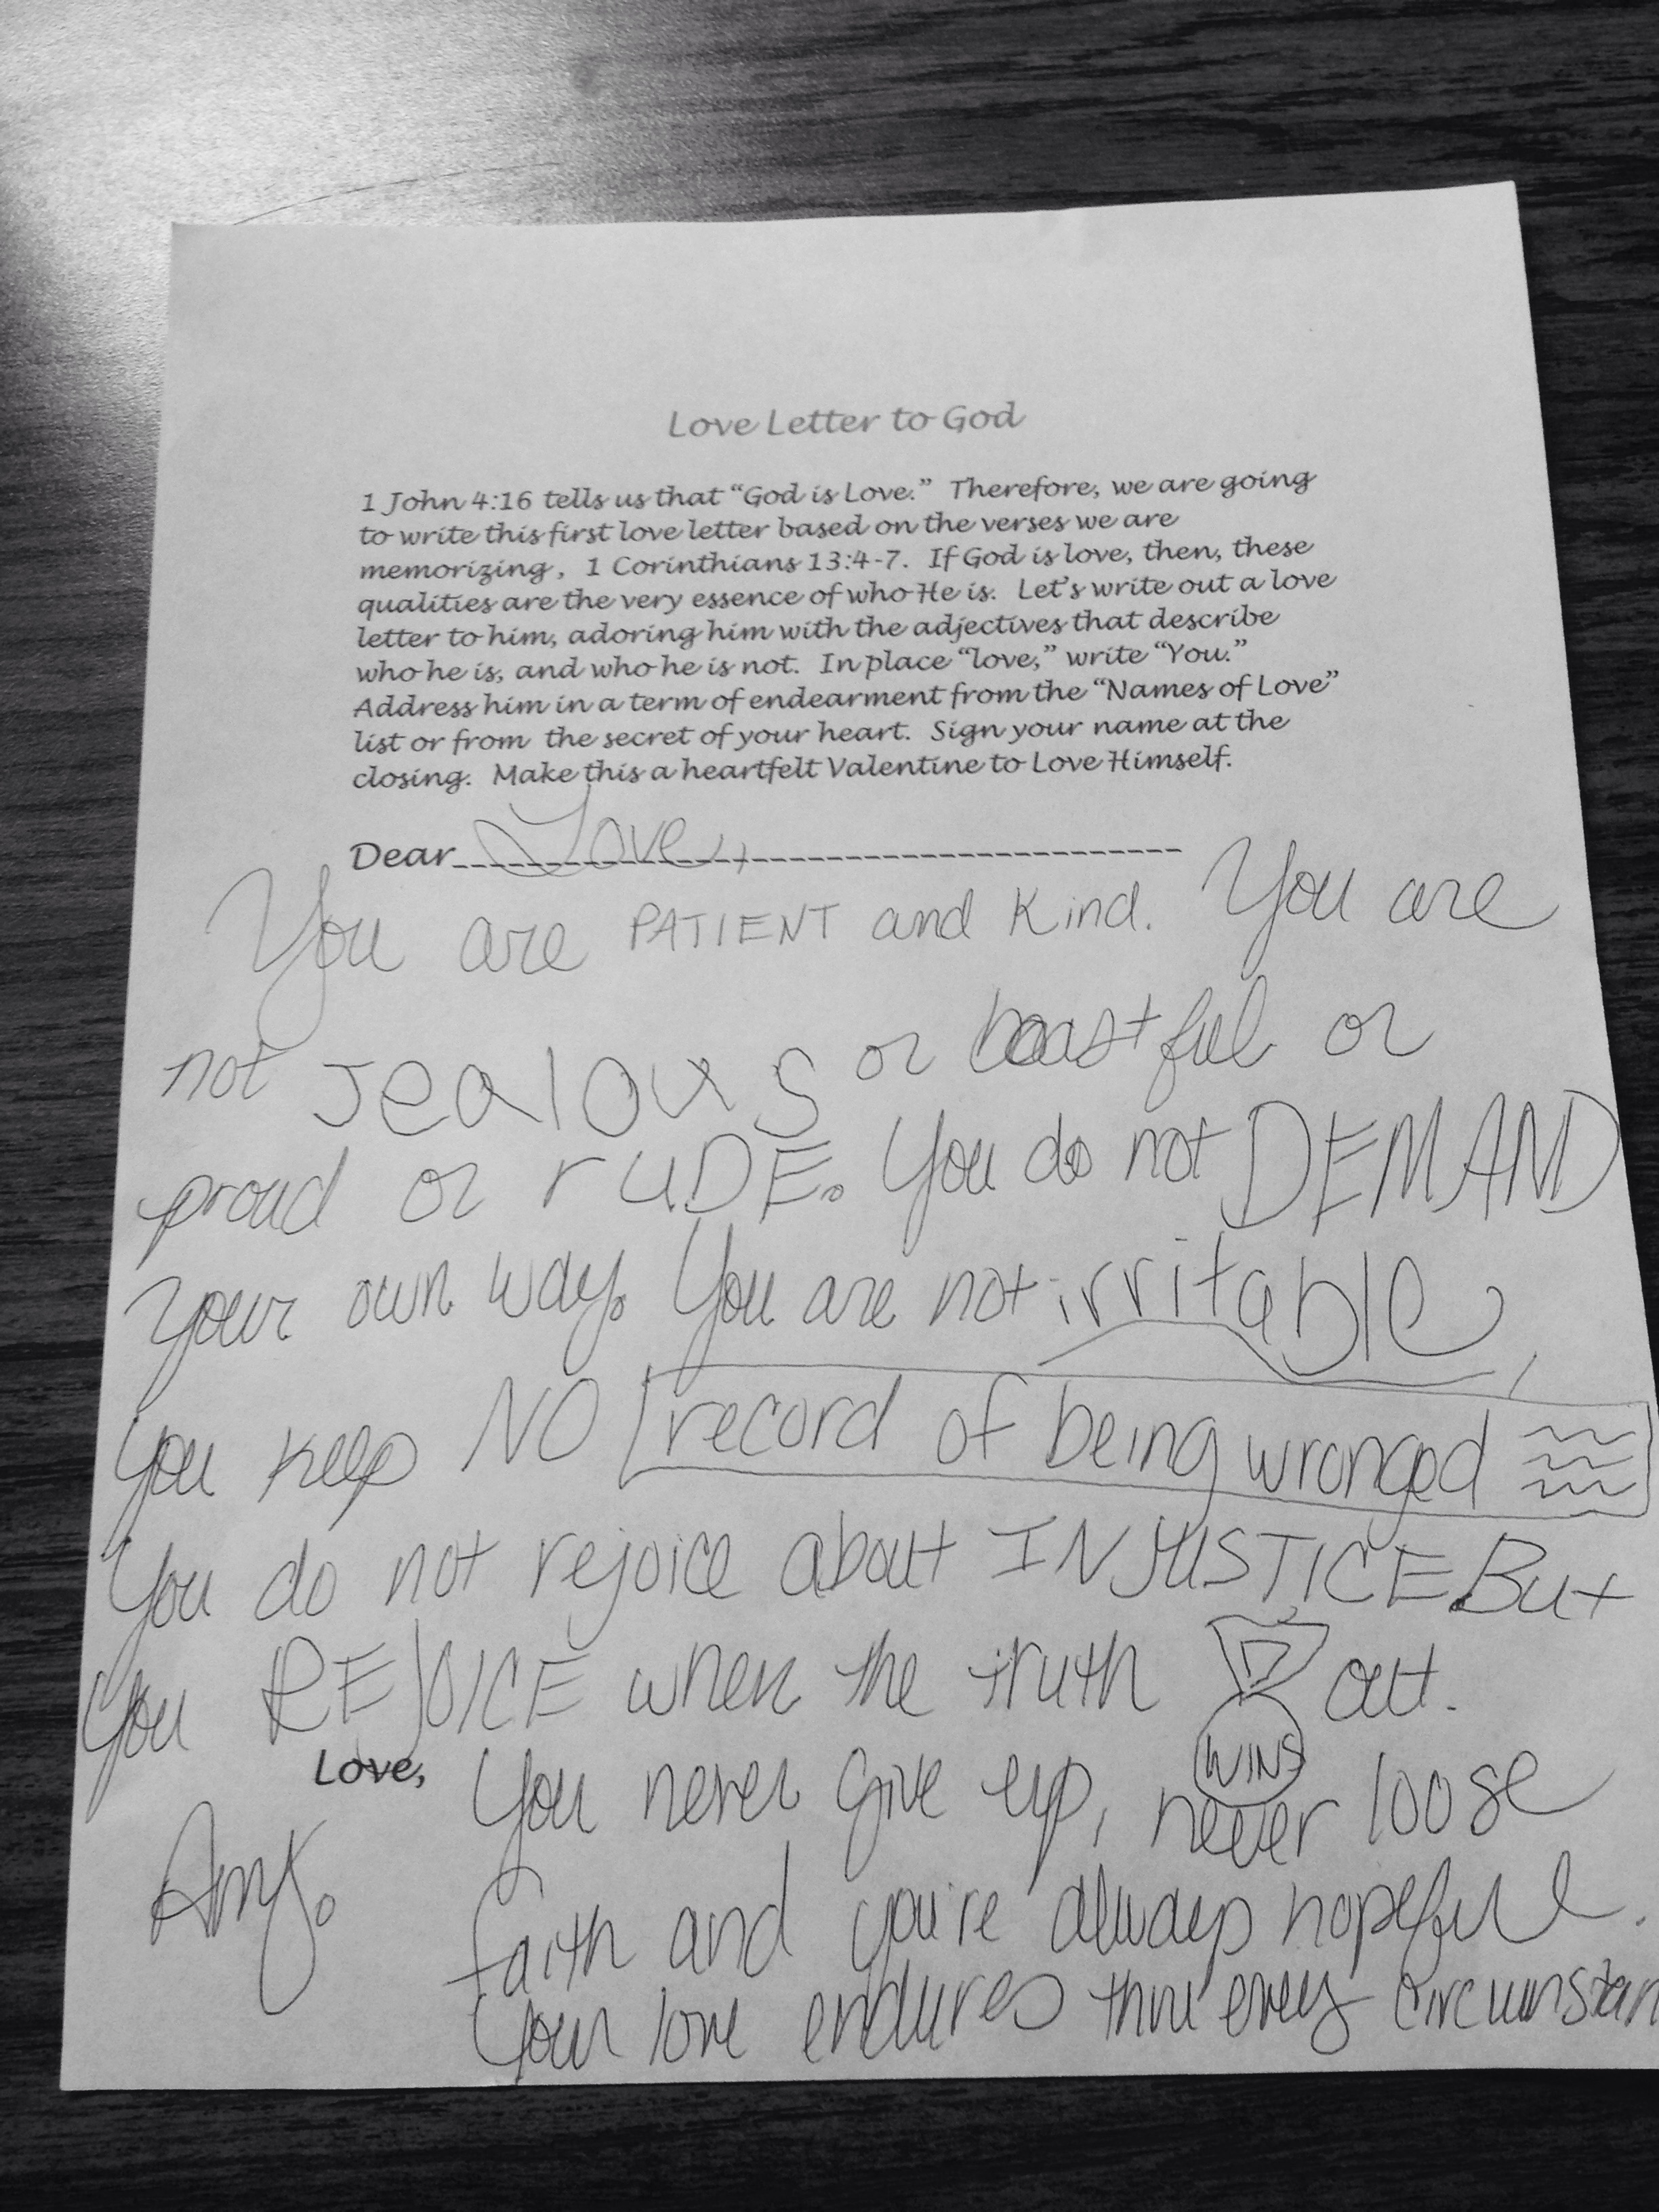 Love Letter to God
1 John 4:16 tells us that “God is Love.” Therefore, we are going
to write this first love letter based on the verses we are
memorizing, 1 Corinthians 13:4-7. If God is love, then, these
qualities are the very essence of who He is. Let’s write out a love
letter to him, adoring him with the adjectives that describe
who he is, and who he is not. In place “love,” write “You.”
Address him in a term of endearment from the “Names of Love”
list or from the secret of your heart. Sign your name at the
closing. Make this a heartfelt Valentine to Love Himself.
Dear Love,
You are PATIENT and Kind. You are
not Jealous or boastful or
proud or rUDE. You do not DEMAND
your own way. You are not irritable,
You keep NO record of being wronged
You do not rejoice about INJUSTICE. But
You REJOICE when the truth WINS out.
Love, You never give up, never loose
Amy. faith and you're always hopeful.
Your love endures thru every circumstan